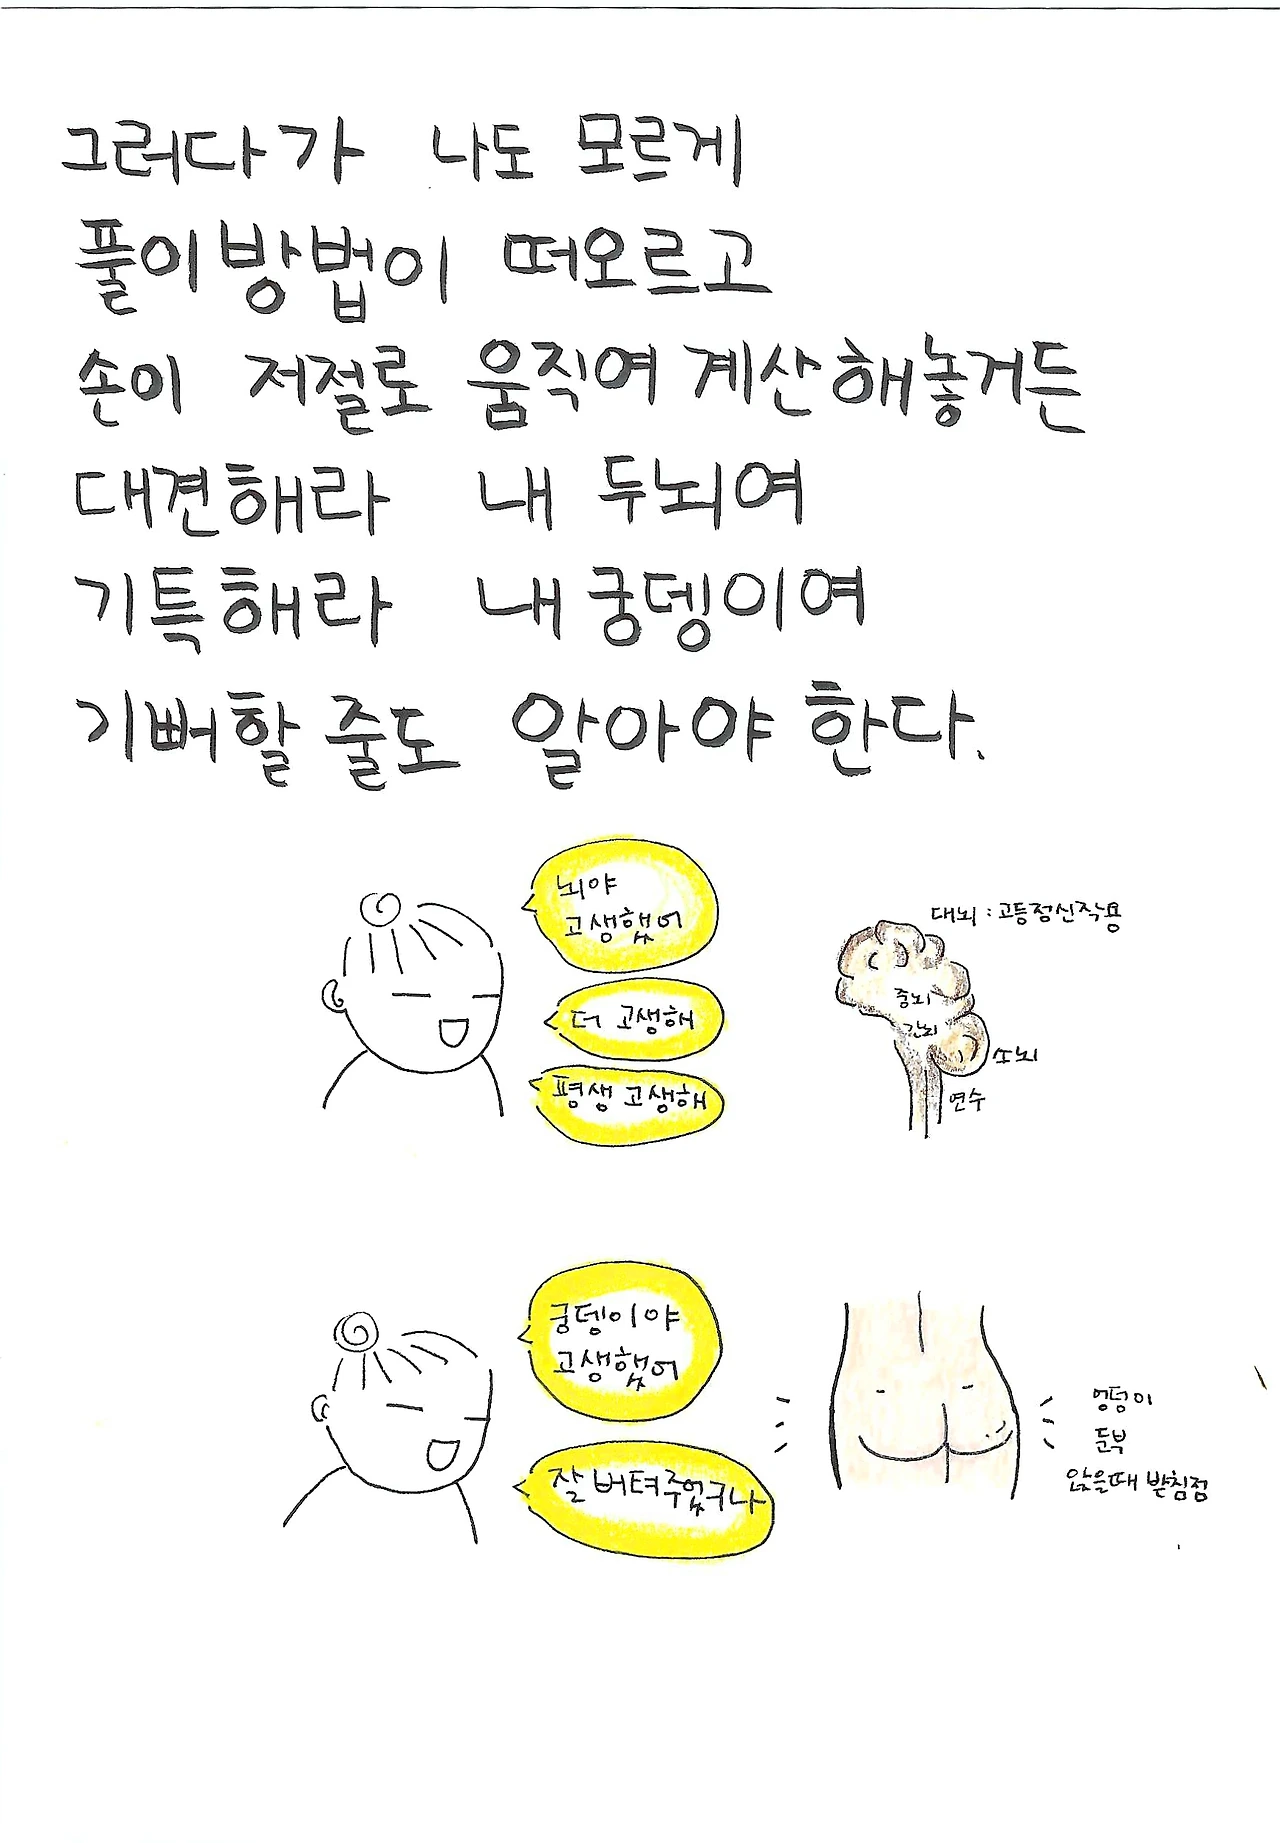 그러다가 나도 모르게
풀이방법이 떠오르고
손이 저절로 움직여 계산해놓거든
대견해라 내 두뇌여
기특해라 내 궁뎅이여
기뻐할 줄도 알아야 한다.
뇌야
고생했어
더 고생해
평생 고생해
대뇌 : 고등정신작용
중뇌
간뇌
소뇌
연수
궁뎅이야
고생했어
잘 버텨주었구나
엉덩이
둔부
앉을때 받침점